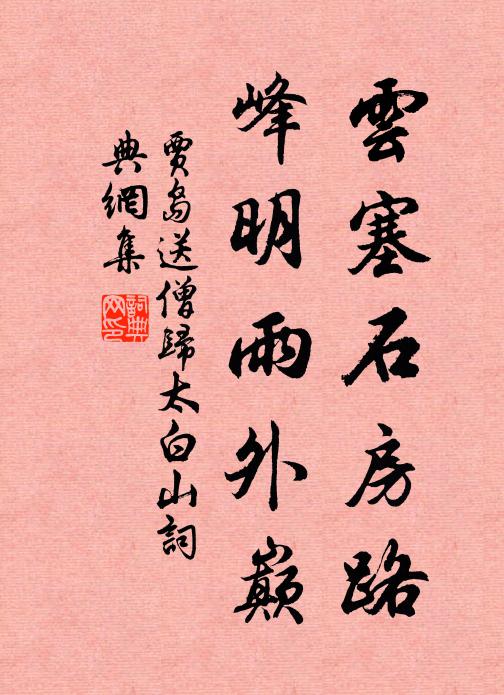 雲塞石房路
峰明雨外巔
賈島送僧歸太白山詞
典網集
詞典
网印